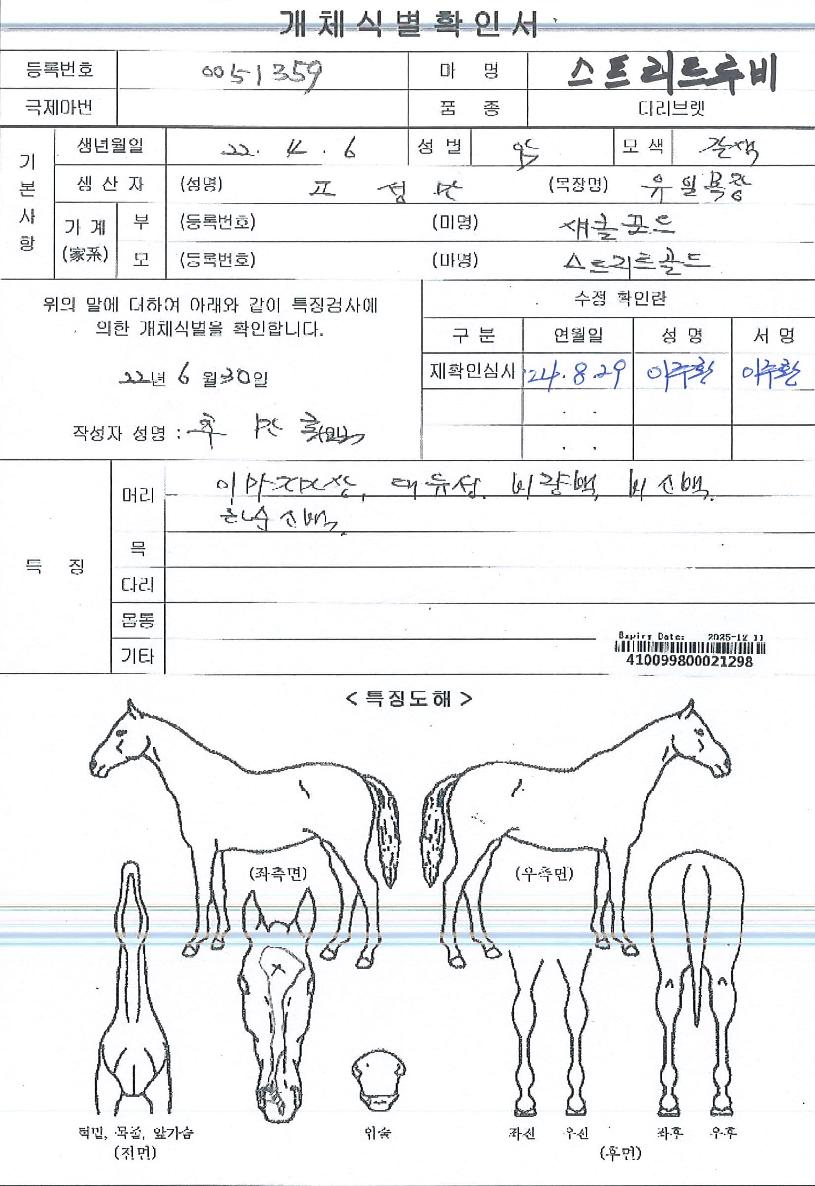 개체식별확인서
등록번호 0051359 마 명 스트리트루비
국제마번 품 종 더러브렛
기본사항
생년월일 22. 4. 6 성 별 암 모 색 갈색
생 산 자 (성명) 표 성 민 (목장명) 유일목장
가 계 (家系) 부 (등록번호) (마명) 섀클포드
모 (등록번호) (마명) 스트리트골드
위의 말에 대하여 아래와 같이 특징검사에
의한 개체식별을 확인합니다.
22년 6 월30일
작성자 성명 :
수정 확인란
구 분 연월일 성 명 서 명
재확인심사 '24. 8. 29 이주환 이주환
. .
. .
특 징
머리 대유성. 비량백, 비신백,
목
다리
몸통
기타
Expiry Date: 2025-12
410099800021298
< 특징도해 >
(좌측면) (우측면)
턱밑, 목줄, 앞가슴 위술 좌전 우전 좌후 우후
(전면) (후면)